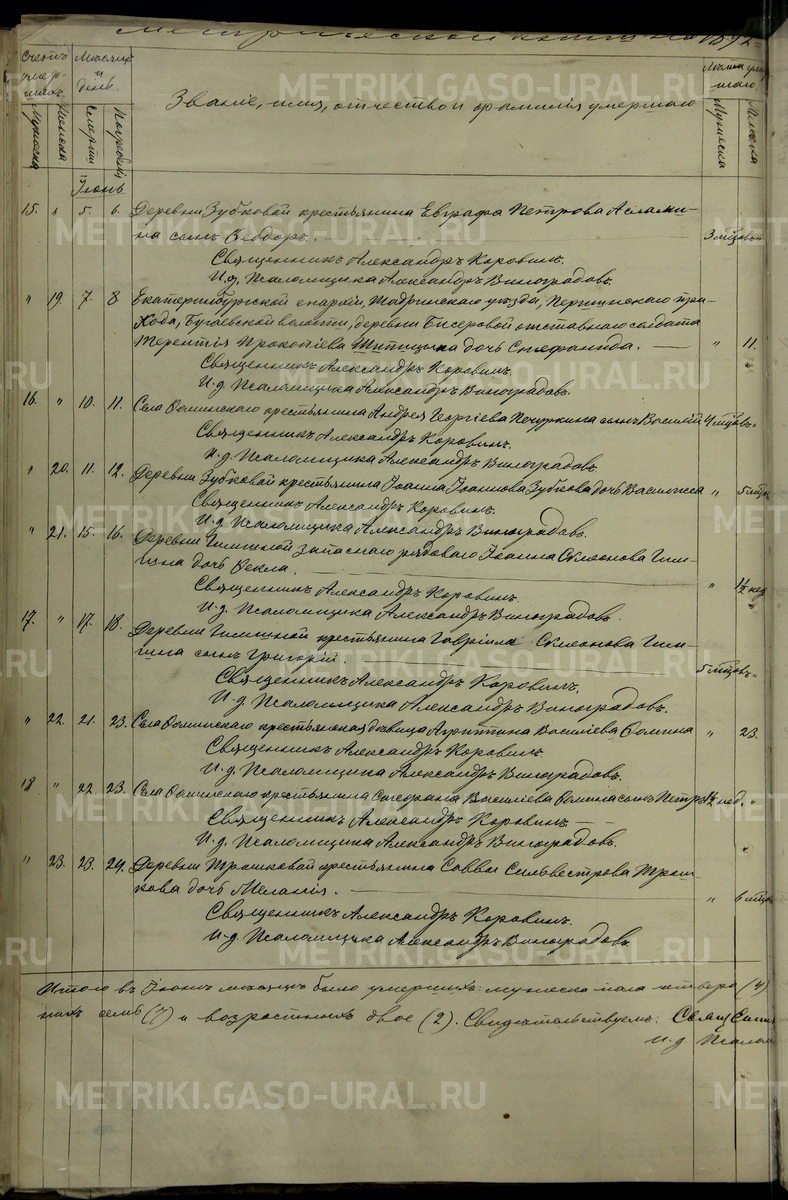 метрической книги на 1892
Счетъ умершихъ.
Мѣсяцъ и день.
Званіе, имя, отчество и фамилія умершаго
Лѣта умершаго.
Мужеска
Женска.
Смерти
Погребенія
Мужеска
Женска
Іюнь
15. " 5. 6. Деревни Зубковой крестьянина Евграфа Петрова Аслами-
на сынъ Ѳеодоръ. — 3 мѣсяцовъ "
Священникъ Александръ Коровинъ.
И.д. Псаломщика Александръ Виноградовъ.
" 19. 7. 8 Екатеринбургской епархіи, Шадринскаго уѣзда, Першинскаго при-
хода, Бугаевской волости, деревни Бисеровой отставнаго солдата
Терентія Прокопіева Шипицына дочь Стефанида. — " 11.
Священникъ Александръ Коровинъ.
И.д. Псаломщика Александръ Виноградовъ.
16. " 10. 11. Села Ѳоминскаго крестьянина Андрея Георгіева Печуркина сынъ Василій 4 мцовъ "
Священникъ Александръ Коровинъ.
И.д. Псаломщика Александръ Виноградовъ.
" 20. 11. 12. Деревни Зубковой крестьянина Іоанна Іоаннова Зубкова дочь Василисса " 5 мцов
Священникъ Александръ Коровинъ.
И.д. Псаломщика Александръ Виноградовъ.
" 21. 15. 16. Деревни запаснаго рядоваго Іоанна Симеонова
дочь Ѳекла. — " 1½ нед
Священникъ Александръ Коровинъ.
И.д. Псаломщика Александръ Виноградовъ.
17. " 17. 18. Деревни крестьянина Гавріила Симеонова
сынъ Григорій. — 5 мцовъ "
Священникъ Александръ Коровинъ.
И.д. Псаломщика Александръ Виноградовъ.
" 22. 21. 23. Села Ѳоминскаго крестьянская дѣвица Агриппина Василіева Ѳомина " 23.
Священникъ Александръ Коровинъ
И.д. Псаломщика Александръ Виноградовъ.
18 " 22 23. Села Ѳоминскаго крестьянина Стефана Василіева Ѳомина сынъ Петръ 1½ нед. "
Священникъ Александръ Коровинъ —
И.д. Псаломщика Александръ Виноградовъ.
" 23. 23. 24. Деревни Трошковой крестьянина Саввы Сильвестрова Трош-
кова дочь Меланія. — " 6 мцов
Священникъ Александръ Коровинъ.
И.д. Псаломщика Александръ Виноградовъ.
Итого въ Іюнѣ мѣсяцѣ было умершихъ: мужеска пола четверо (4)
семь (7) и возрастныхъ двое (2). Свидѣтельствуемъ: Священ
И.д Псалом
METRIKI.GASO-URAL.RU